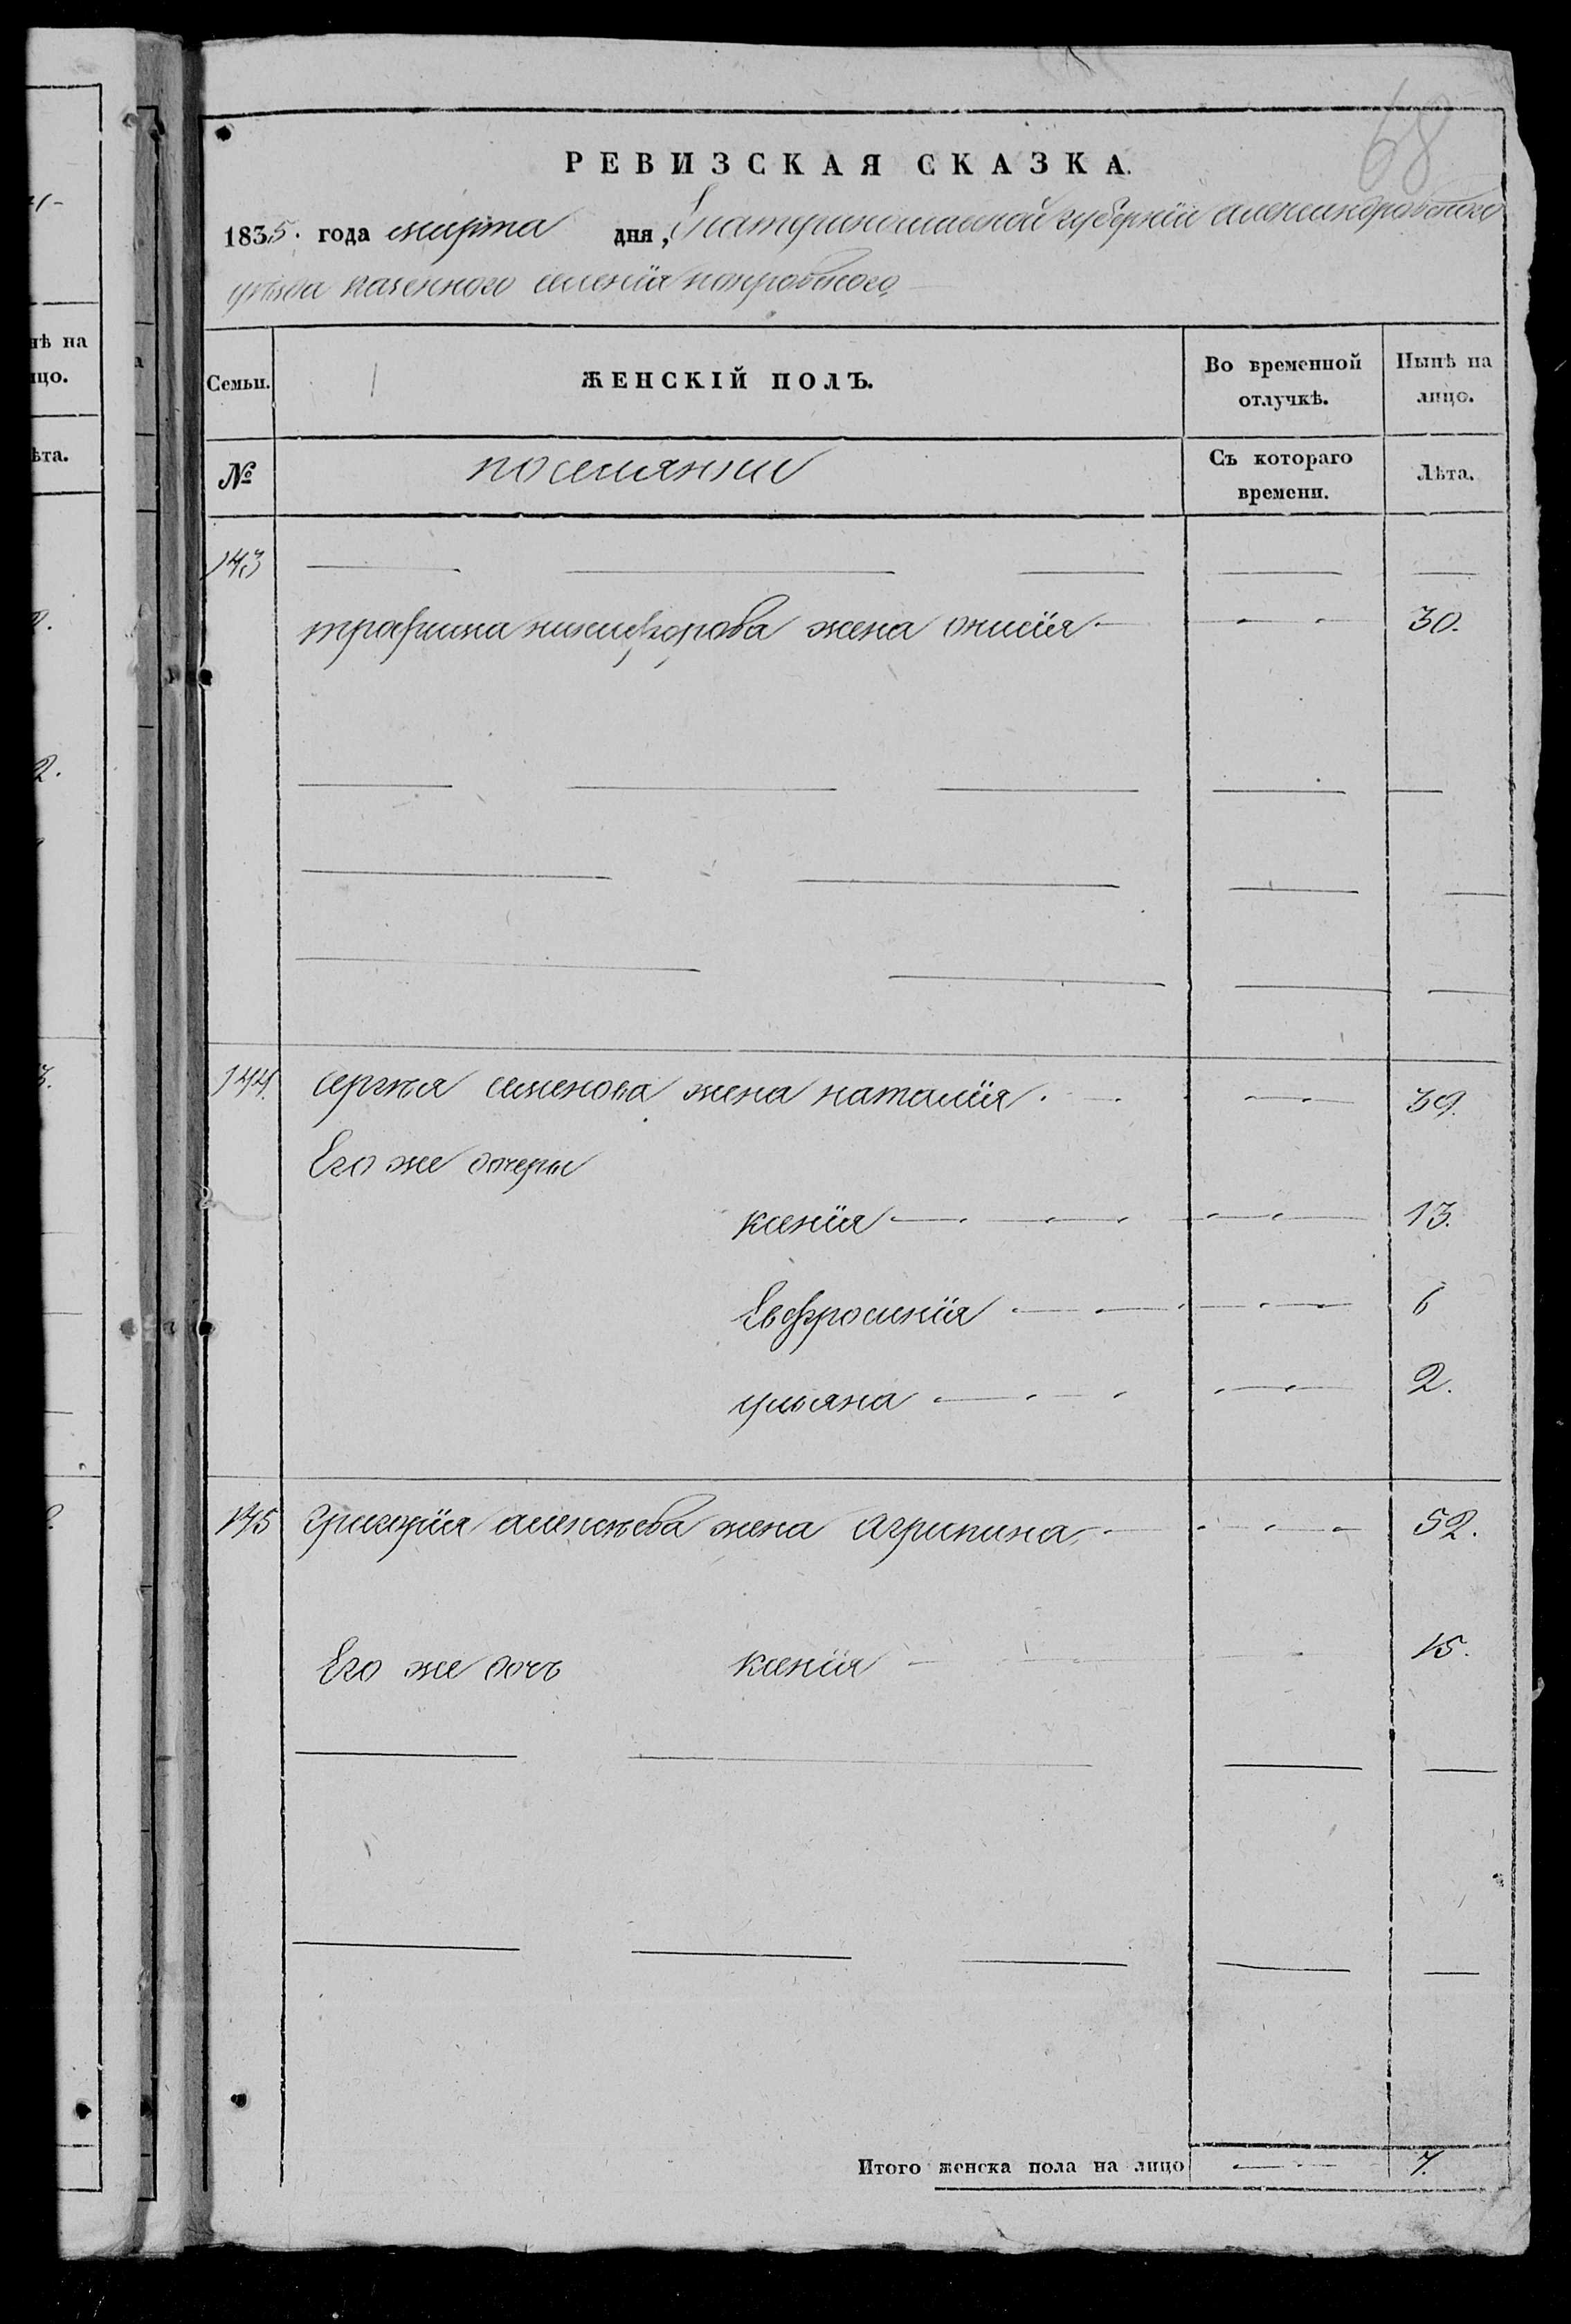 68
РЕВИЗСКАЯ СКАЗКА.
1835. года марта дня, Екатеринославской губернїи александровского
уѣзда казенного селенїя покровского
Семьи. ЖЕНСКІЙ ПОЛЪ. Во временной отлучкѣ. Нынѣ на лицо.
№ поселянки Съ котораго времени. Лѣта.
143
трафима никифорова жена 30.
144. сергѣя семенова жена наталїя 39.
Его же дочери
ксенїя 13.
Евфросинїя 6
ульяна 2.
145 григорїя алексѣева жена агрипина 52.
Его же дочь ксенїя 15.
Итого женска пола на лицо 7.
нѣ на
ицо.
ѣта.
2.
3.